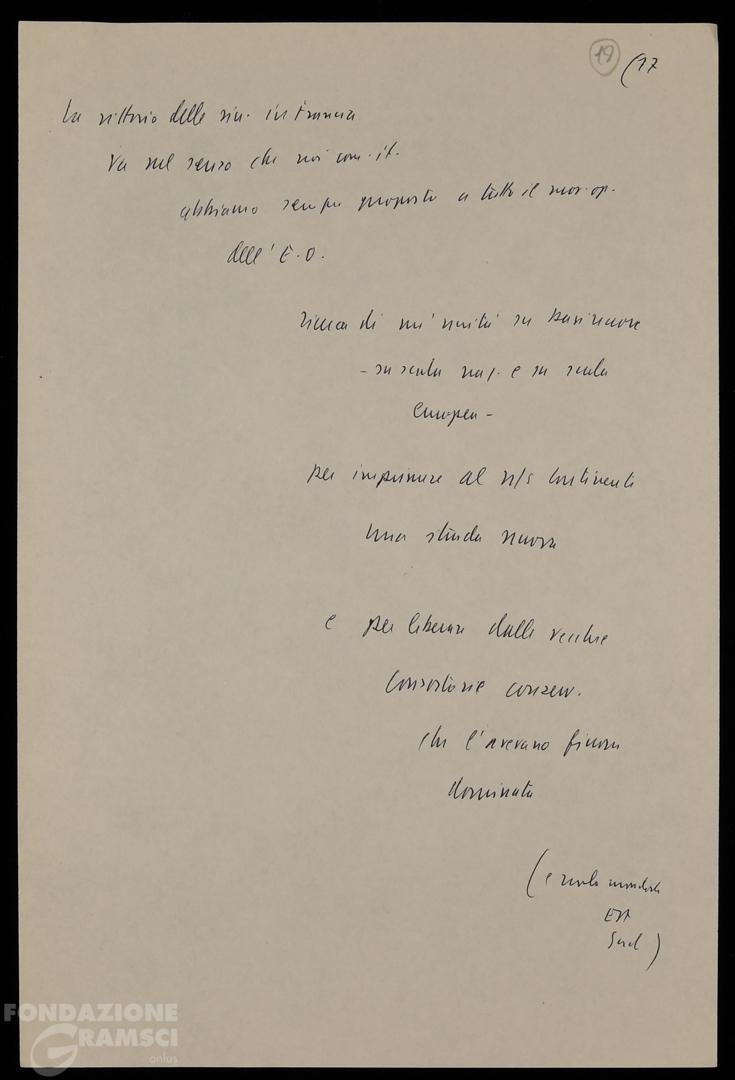 19 (17
La vittoria delle sin. in Francia
Va nel senso che noi com. it.
abbiamo sempre proposto a tutto il mov. op.
dell'E.O.
ricerca di un'unità su basi nuove
- su scala naz. e su scala
europea -
per imprimere al n/s continente
una strada nuova
e per liberare dalle vecchie
consorterie conserv.
che l'avevano finora
dominata
(e ruolo mondiale
Est
Sud)
FONDAZIONE
GRAMSCI
onlus